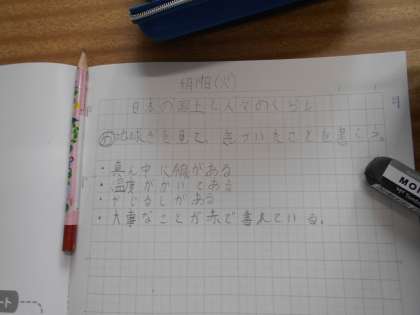 4月19日(火)
日本の国土と人々のくらし
め 地球ぎを見て、気づいたことを書こう。
・真ん中に線がある
・温度がかいてある
・やじるしがある
・大事なことが赤で書いている。
MO
ート